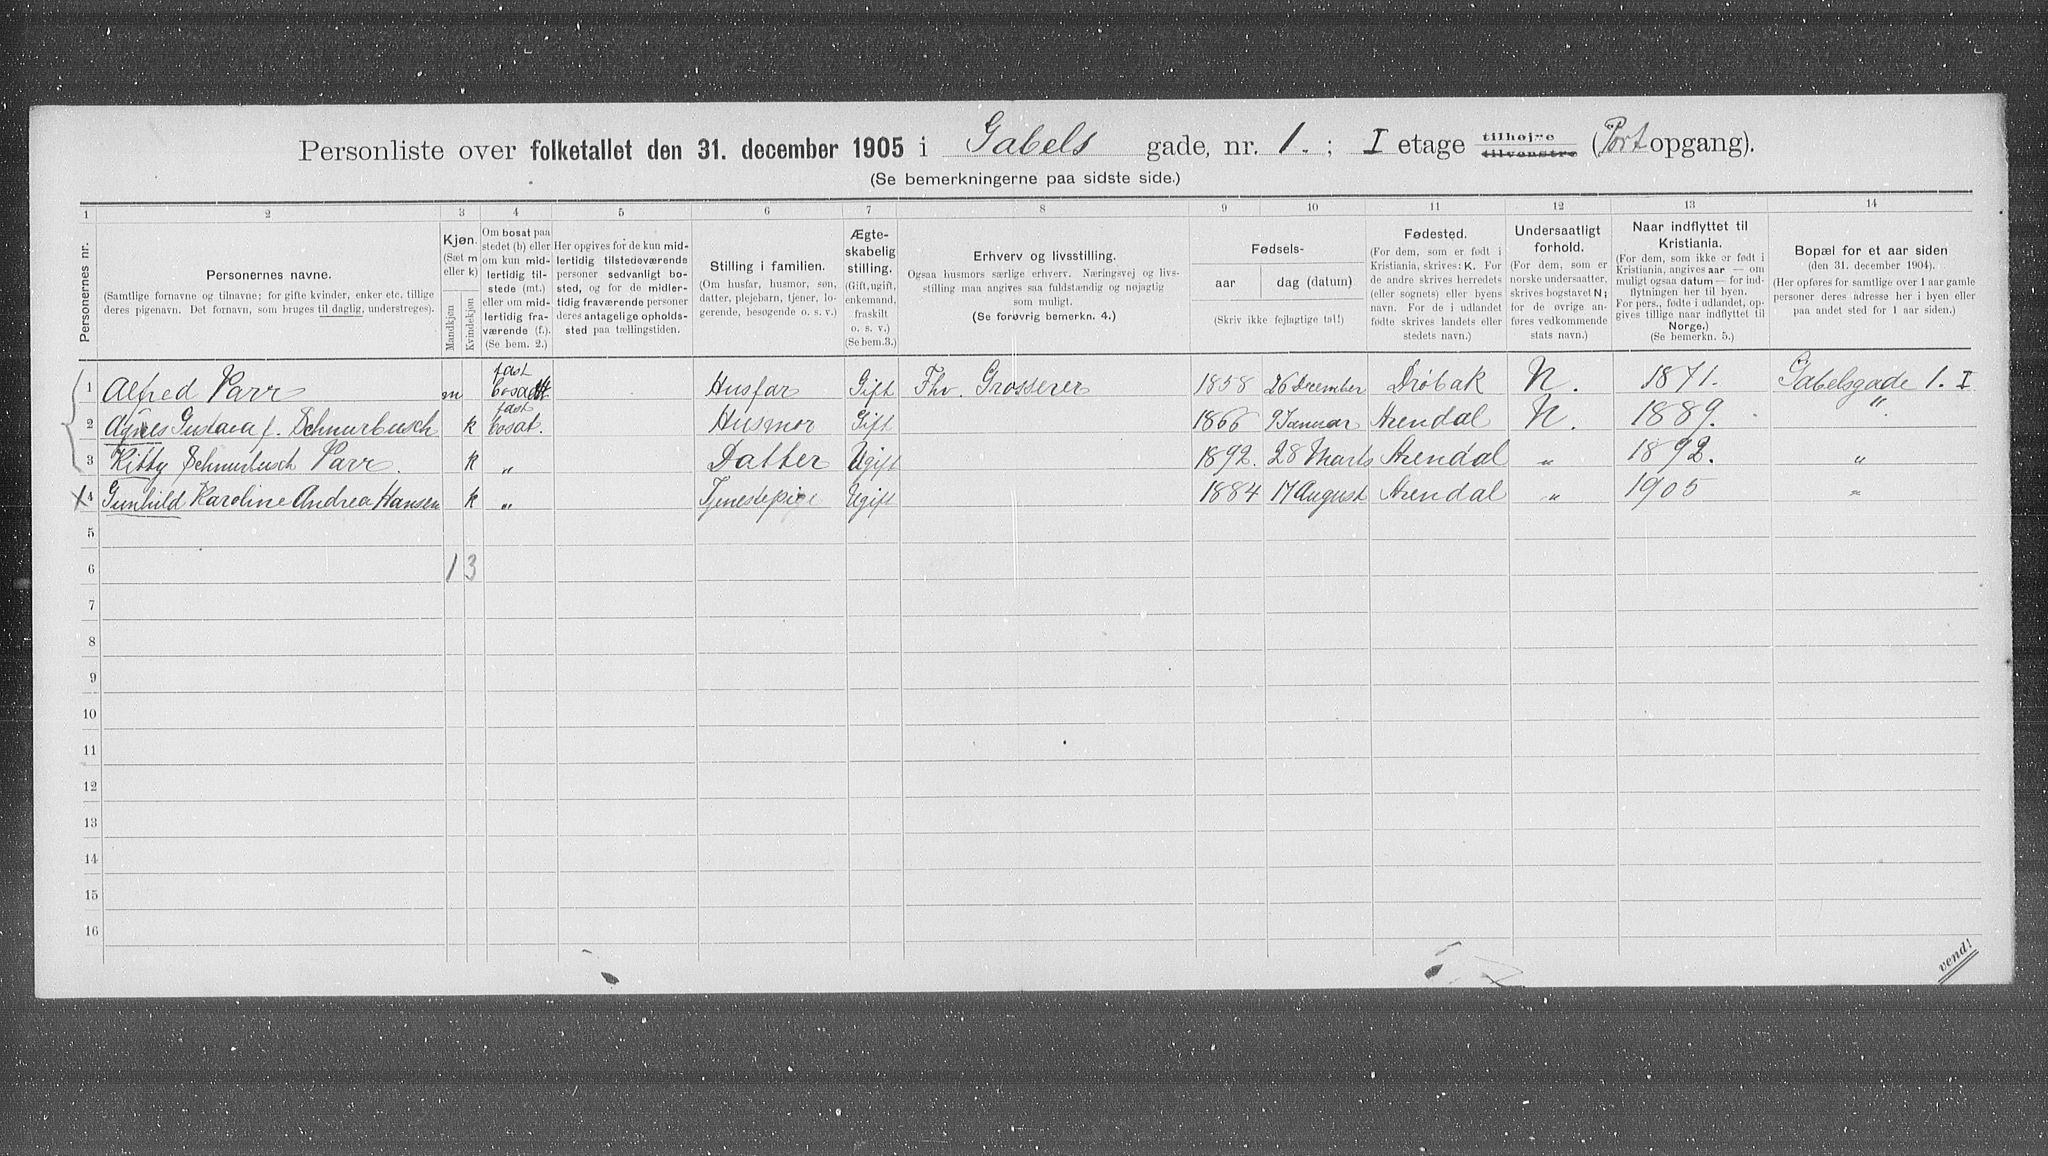 Personliste over folketallet den 31. december 1905 i Gabels gade, nr. 1. ; I etage tilhøjre tilvenstre (Port opgang).
(Se bemerkningerne paa sidste side.)
1 2 3 4 5 6 7 8 9 10 11 12 13 14
Personernes nr.
Personernes navne.
(Samtlige fornavne og tilnavne; for gifte kvinder, enker etc. tillige deres pigenavn. Det fornavn, som bruges til daglig, understreges).
Kjøn.
(Sæt m eller k)
Mandkjøn
Kvindekjøn
Om bosat paa stedet (b) eller om kun midlertidig tilstede (mt.) eller om midlertidig fraværende (f.). (Se bem. 2.)
Her opgives for de kun midlertidig tilstedeværende personer sedvanligt bosted, og for de midlertidig fraværende personer deres antagelige opholdssted paa tællingstiden.
Stilling i familien.
(Om husfar, husmor, søn, datter, plejebarn, tjener, logerende, besøgende o. s. v.)
Ægteskabelig stilling.
(Gift, ugift, enkemand, fraskilt o. s. v.)
(Se bem. 3.)
Erhverv og livsstilling.
Ogsaa husmors særlige erhverv. Næringsvej og livsstilling maa angives saa fuldstændig og nøjagtig som muligt.
(Se forøvrig bemerkn. 4.)
Fødsels-
aar
dag (datum)
(Skriv ikke fejlagtige tal!)
Fødested.
(For dem, som er født i Kristiania, skrives: K. For de andre skrives herredets (eller sognets) eller byens navn. For de i udlandet fødte skrives landets eller stedets navn.)
Undersaatligt forhold.
(For dem, som er norske undersaatter, skrives bogstavet N; for de øvrige anføres vedkommende stats navn.)
Naar indflyttet til Kristiania.
(For dem, som ikke er født i Kristiania, angives aar — om muligt ogsaa datum — for indflytningen her til byen. For pers., fødte i udlandet, opgives tillige naar indflyttet til Norge.)
(Se bemerkn. 5.)
Bopæl for et aar siden
(den 31. december 1904).
(Her opføres for samtlige over 1 aar gamle personer deres adresse her i byen eller paa andet sted for 1 aar siden.)
1 Alfred Parr m fast bosatt Husfar Gift Fhv. Grosserer 1858 26 December Drøbak N. 1871. Gabelsgade 1. I
2 Agnes Gustava f. Schnurbusch k fast bosat. Husmor Gift 1866 2 Januar Arendal N. 1889. "
3 Kitty Schnurbusch Parr. k " Datter Ugift 1892. 28 Marts Arendal " 1892. "
4 Gunhild Karoline Andrea Hansen k " Tjenestepige Ugift 1884 17 August Arendal " 1905 "
5
6 1 3
7
8
9
10
11
12
13
14
15
16
vend!